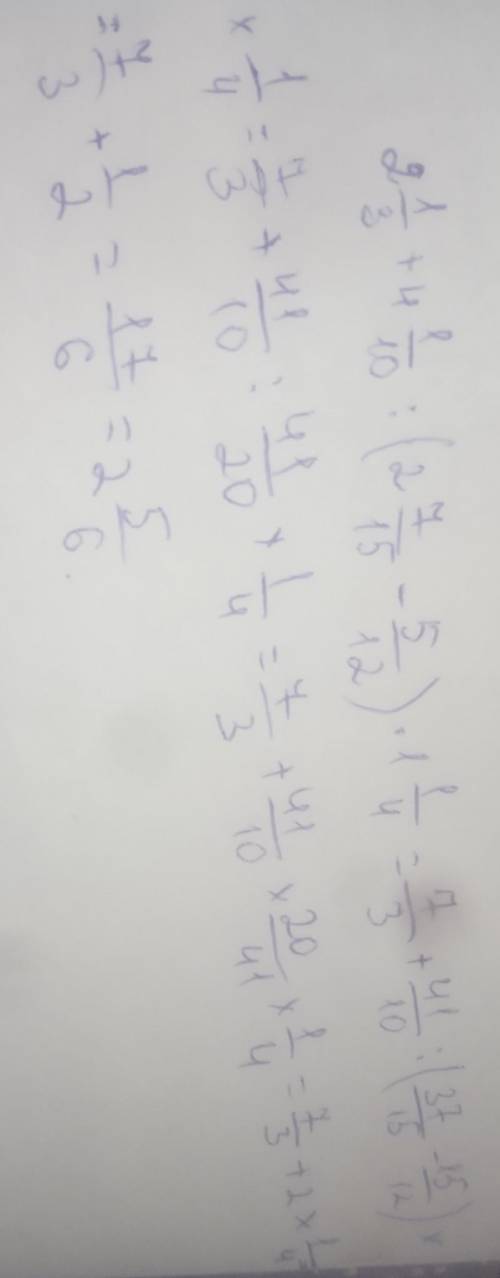 2 1/3 + 4 1/10 : (2 7/15 - 5/12) · 1 1/4 = 7/3 + 41/10 : (37/15 - 15/12) ×
× 1/4 = 7/3 + 41/10 : 41/20 × 1/4 = 7/3 + 41/10 × 20/41 × 1/4 = 7/3 + 2 × 1/4
= 7/3 + 1/2 = 17/6 = 2 5/6.